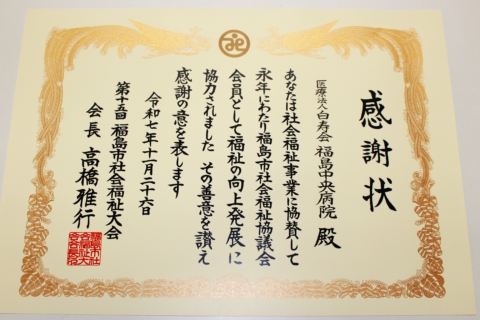 感謝状
医療法人白寿会 福島中央病院 殿
あなたは社会福祉事業に協賛して
永年にわたり福島市社会福祉協議会
会員として福祉の向上発展に
協力されました その善意を讃え
感謝の意を表します
令和七年十一月二十六日
第十五回 福島市社会福祉大会
会長 高橋雅行